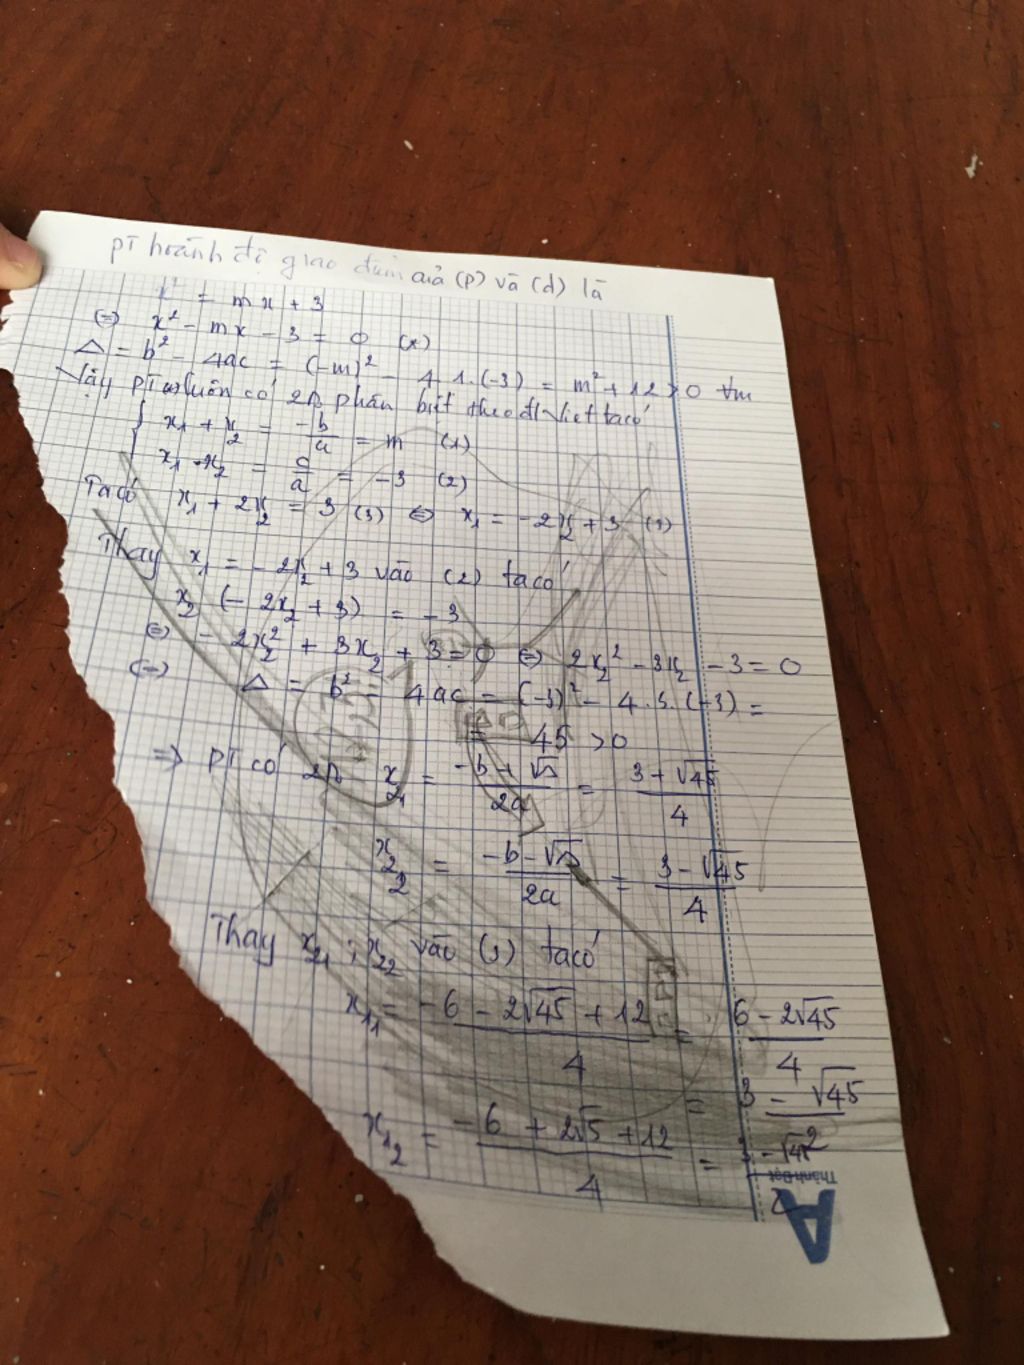 pt hoành độ giao điểm của (p) và (d) là
x² = mx + 3
⇔ x² - mx - 3 = 0 (x)
Δ = b² - 4ac = (-m)² - 4.1.(-3) = m² + 12 > 0 ∀m
Vậy pt luôn có 2n phân biệt theo đl Viet ta có
x₁ + x₂ = -b/a = m (1)
x₁ . x₂ = c/a = -3 (2)
Ta có x₁ + 2x₂ = 3 (3) ⇔ x₁ = -2x₂ + 3 (3)
Thay x₁ = -2x₂ + 3 vào (2) ta có
x₂ (-2x₂ + 3) = -3
⇔ -2x₂² + 3x₂ + 3 = 0 ⇔ 2x₂² - 3x₂ - 3 = 0
(-) Δ = b² - 4ac = (-3)² - 4.3.(-3) =
= 45 > 0
⇒ pt có 2n x₂₁ = (-b + √Δ)/2a = (3 + √45)/4
x₂₂ = (-b - √Δ)/2a = (3 - √45)/4
Thay x₂₁ ; x₂₂ vào (3) ta có
x₁₁ = (-6 - 2√45 + 12)/4 = (6 - 2√45)/4
= (3 - √45)/2
x₁₂ = (-6 + 2√5 + 12)/4 = (3 - √45)/2
Thành Đạt
A